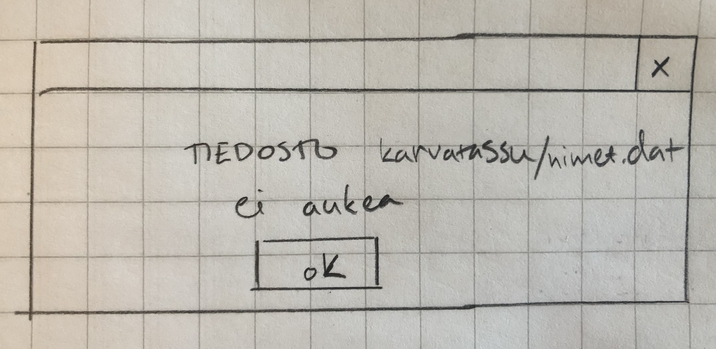 X
TIEDOSTO karvatassu/nimet.dat
ei aukea
OK